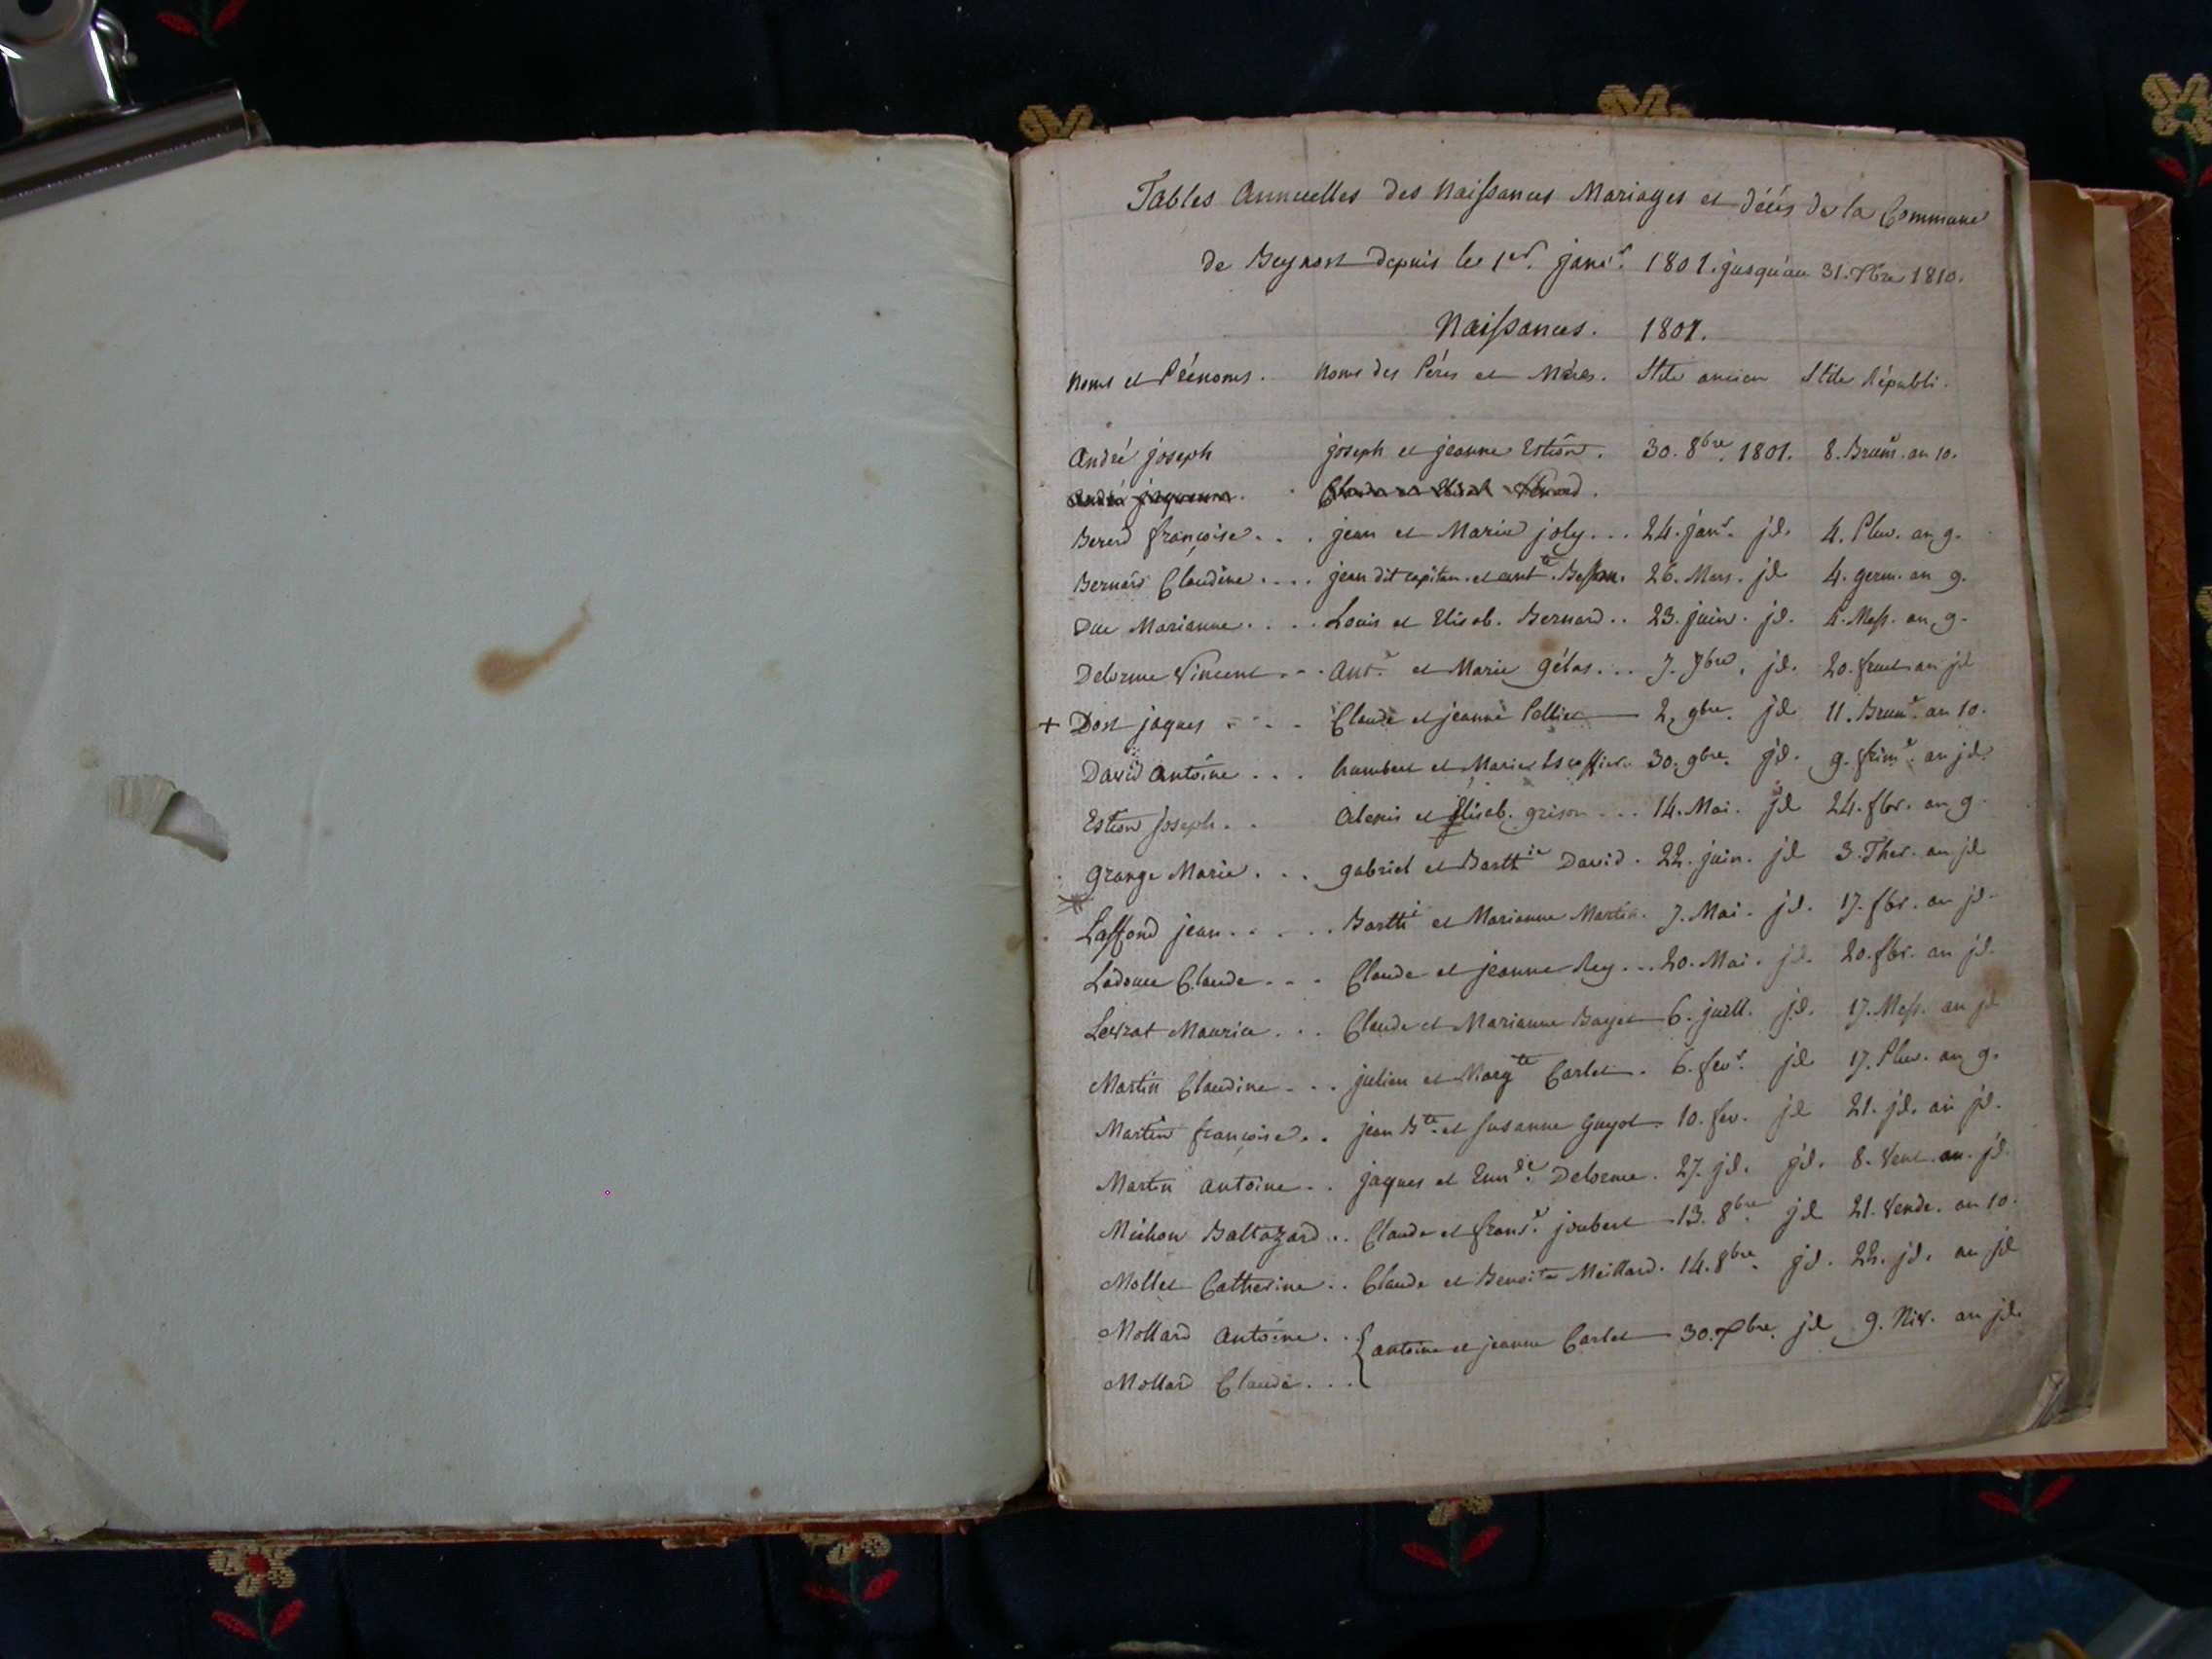 Tables Annuelles des Naissances Mariages et décés de la Commune
de Beynost depuis le 1er. janvr. 1801. jusqu'au 31. Xbre 1810.
Naissances. 1801.
Noms et Prénoms. Noms des Péres et Méres. Stile ancien Stile Républi.
André joseph joseph et jeanne Estion. 30. 8bre. 1801. 8. Brumr. an 10.
Bererd françoise... jean et Marie joly... 24. janr. jd. 4. Pluv. an 9.
Bernard Claudine.... jean dit capitan. et antte. Besson. 26. Mars. jd 4. germ. an 9.
Duc Marianne.... Louis et Elisab. Bernard.. 23. juin. jd. 4. Mess. an 9.
Delorme Vincent... Ante. et Marie gélas... 7. 7bre. jd. 20. fruct. an jd
+ Dost jaques.... Claude et jeanne Pellier 2. 9bre. jd 11. Brumr. an 10.
David Antoine... humbert et Marie Escoffier.. 30. 9bre. jd. 9. frimr. an jd.
Estion Joseph.. Alexis et Elisab. grison... 14. Mai. jd 24. flor. an 9.
Grange Marie... gabriel et Bartthie David. 22. juin. jd 3. Ther. an jd
Laffond jean..... Bartthi et Marianne Martin. 7. Mai. jd. 17. flor. an jd.
Ladouce Claude... Claude et jeanne Rey... 20. Mai. jd. 20. flor. an jd.
Levrat Maurice... Claude et Marianne Bayet 6. juill. jd. 17. Mess. an jd
Martin Claudine... julien et Margte Carlet. 6. fevr. jd 17. Pluv. an 9.
Martin françoise.. jean Bte. et Susanne guyot. 10. fev. jd 21. jd. an jd.
Martin antoine.. jaques et Ennde. Delorme. 27. jd. jd. 8. Vent. an. jd.
Michon Baltazard.. Claude et franse. joubert 13. 8bre. jd 21. Vende. an 10.
Mollet Catherine.. Claude et Benoite Meillard. 14. 8bre. jd. 22. jd. an jd
Mollard antoine.. { antoine et jeanne Carlet 30. Xbre. jd 9. Niv. an jd.
Mollard Claude...